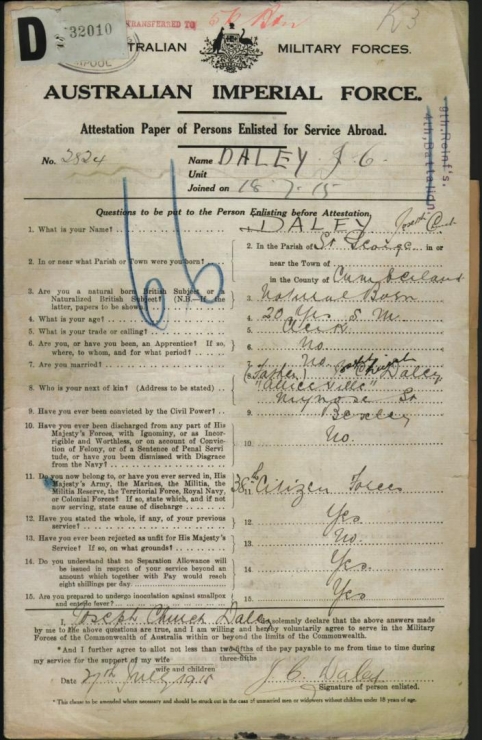 D
32010
TRANSFERRED TO
5th Bn
K3
AUSTRALIAN MILITARY FORCES.
AUSTRALIAN IMPERIAL FORCE.
Attestation Paper of Persons Enlisted for Service Abroad.
8th. Reinf's.
4th. Battalion
No. 2824 Name DALEY J. C.
Unit
Joined on 18-7-15
66
Questions to be put to the Person Enlisting before Attestation.
1. What is your Name? 1. DALEY Joseph Church
2. In or near what Parish or Town were you born? 2. In the Parish of St George in or
near the Town of
in the County of Cumberland
3. Are you a natural born British Subject or a
Naturalized British Subject? (N.B.—
latter, papers to be shown) 3. Natural Born
4. What is your age? 4. 20 Yrs 8 M.
5. What is your trade or calling? 5. Clerk
6. Are you, or have you been, an Apprentice? If so,
where, to whom, and for what period? 6. No
7. Are you married? 7. No
8. Who is your next of kin? (Address to be stated) 8. Father Daley
St
Bexley
9. Have you ever been convicted by the Civil Power? 9.
10. Have you ever been discharged from any part of His
Majesty's Forces, with Ignominy, or as Incor-
rigible and Worthless, or on account of Convic-
tion of Felony, or of a Sentence of Penal Servi-
tude, or have you been dismissed with Disgrace
from the Navy? 10. No.
11. Do you now belong to, or have you ever served in, His
Majesty's Army, the Marines, the Militia, the
Militia Reserve, the Territorial Force, Royal Navy,
or Colonial Forces? If so, state which, and if not
now serving, state cause of discharge 11. 38th Citizen Forces
12. Have you stated the whole, if any, of your previous
service? 12. Yes
13. Have you ever been rejected as unfit for His Majesty's
Service? If so, on what grounds? 13. No.
14. Do you understand that no Separation Allowance will
be issued in respect of your service beyond an
amount which together with Pay would reach
eight shillings per day. 14. Yes.
15. Are you prepared to undergo inoculation against smallpox
and enteric fever? 15. Yes
I, Joseph Church Daley do solemnly declare that the above answers made
by me to the above questions are true, and I am willing and hereby voluntarily agree to serve in the Military
Forces of the Commonwealth of Australia within or beyond the limits of the Commonwealth.
*And I further agree to allot not less than two-fifths of the pay payable to me from time to time during
three-fifths
my service for the support of my wife
wife and children
Date 27th July 1915 J. C. Daley
Signature of person enlisted.
*This clause to be amended where necessary and should be struck out in the case of unmarried men or widowers without children under 18 years of age.